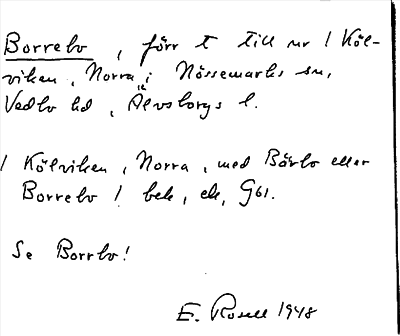 Borrebo, förr t till nr 1 Köl-
viken, Norra, i Nössemarks sn,
Vedbo hd, Älvsborgs l.
1 Kölviken, Norra, med Börbo eller
Borrebo 1 bek, ek, Gbl.
Se Borrbo!
E. Rosell 1948